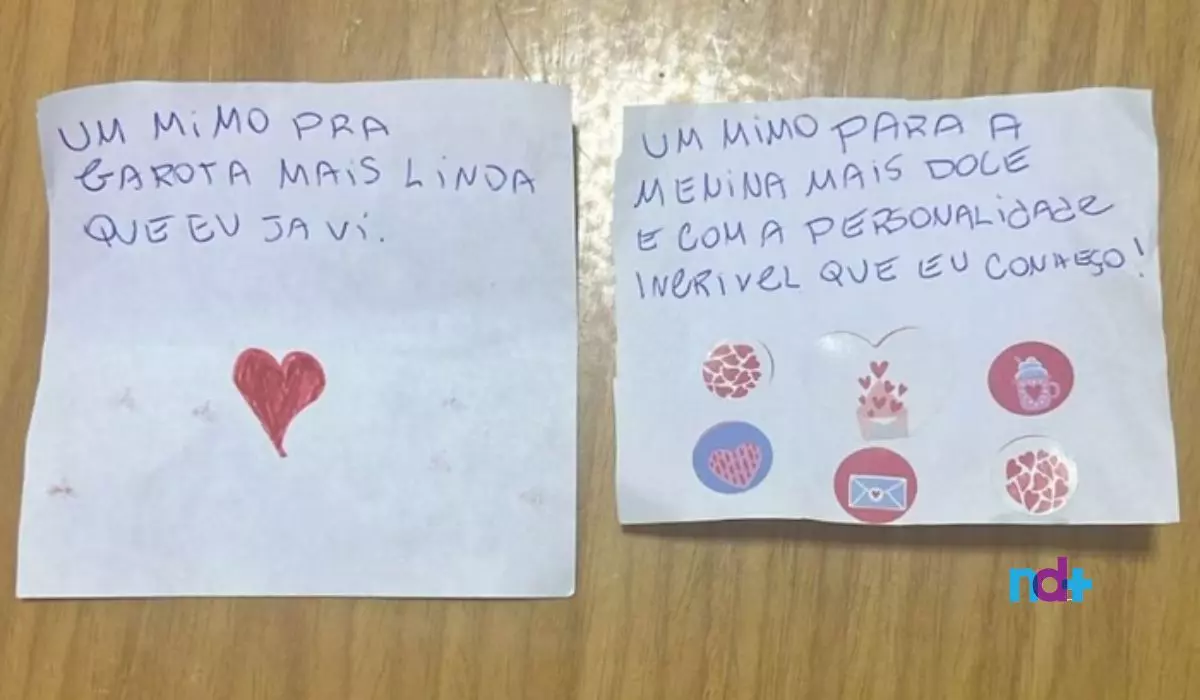 UM MiMO PRA
GAROTA MAiS LiNDA
QUE EU JA Vi.
UM MiMO PARA A
MENiNA MAiS DOCE
E COM A PERSONALidAdE
INCRIVEL QUE EU CONHEÇO!
nd+